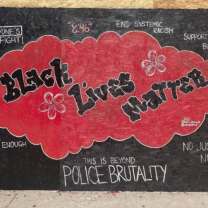 ONE'S
FIGHT!
8:46"
END SYSTEMIC
RACISM
SUPPORT
Black
Lives
Matter
ENOUGH
THIS IS BEYOND
POLICE BRUTALITY
NO JUS